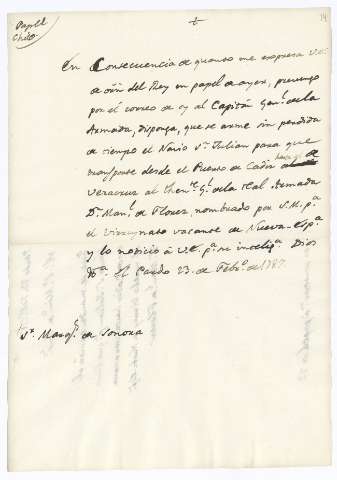 Papel
Chico
14
En Consecuencia de quanto me expresa V.E.
de orñ del Rey en papel de ayer, prevengo
por el correo de oy al Capitán Genl. de la
Armada, disponga, que se arme sin perdida
de tiempo el Navio Sn. Julian para que
transporte desde el Puerto de Cadiz hasta el de
Veracruz al Thente. Gl. de la Real Armada
Dn. Manl. de Florez, nombrado por S.M. pa.
el Virreynato vacante de Nueva-Espa.
y lo noticio á V.E. pa. su inteliga. Dios
El Pardo 23 de Febro. de 1787
Sr. Marqs. de Sonora